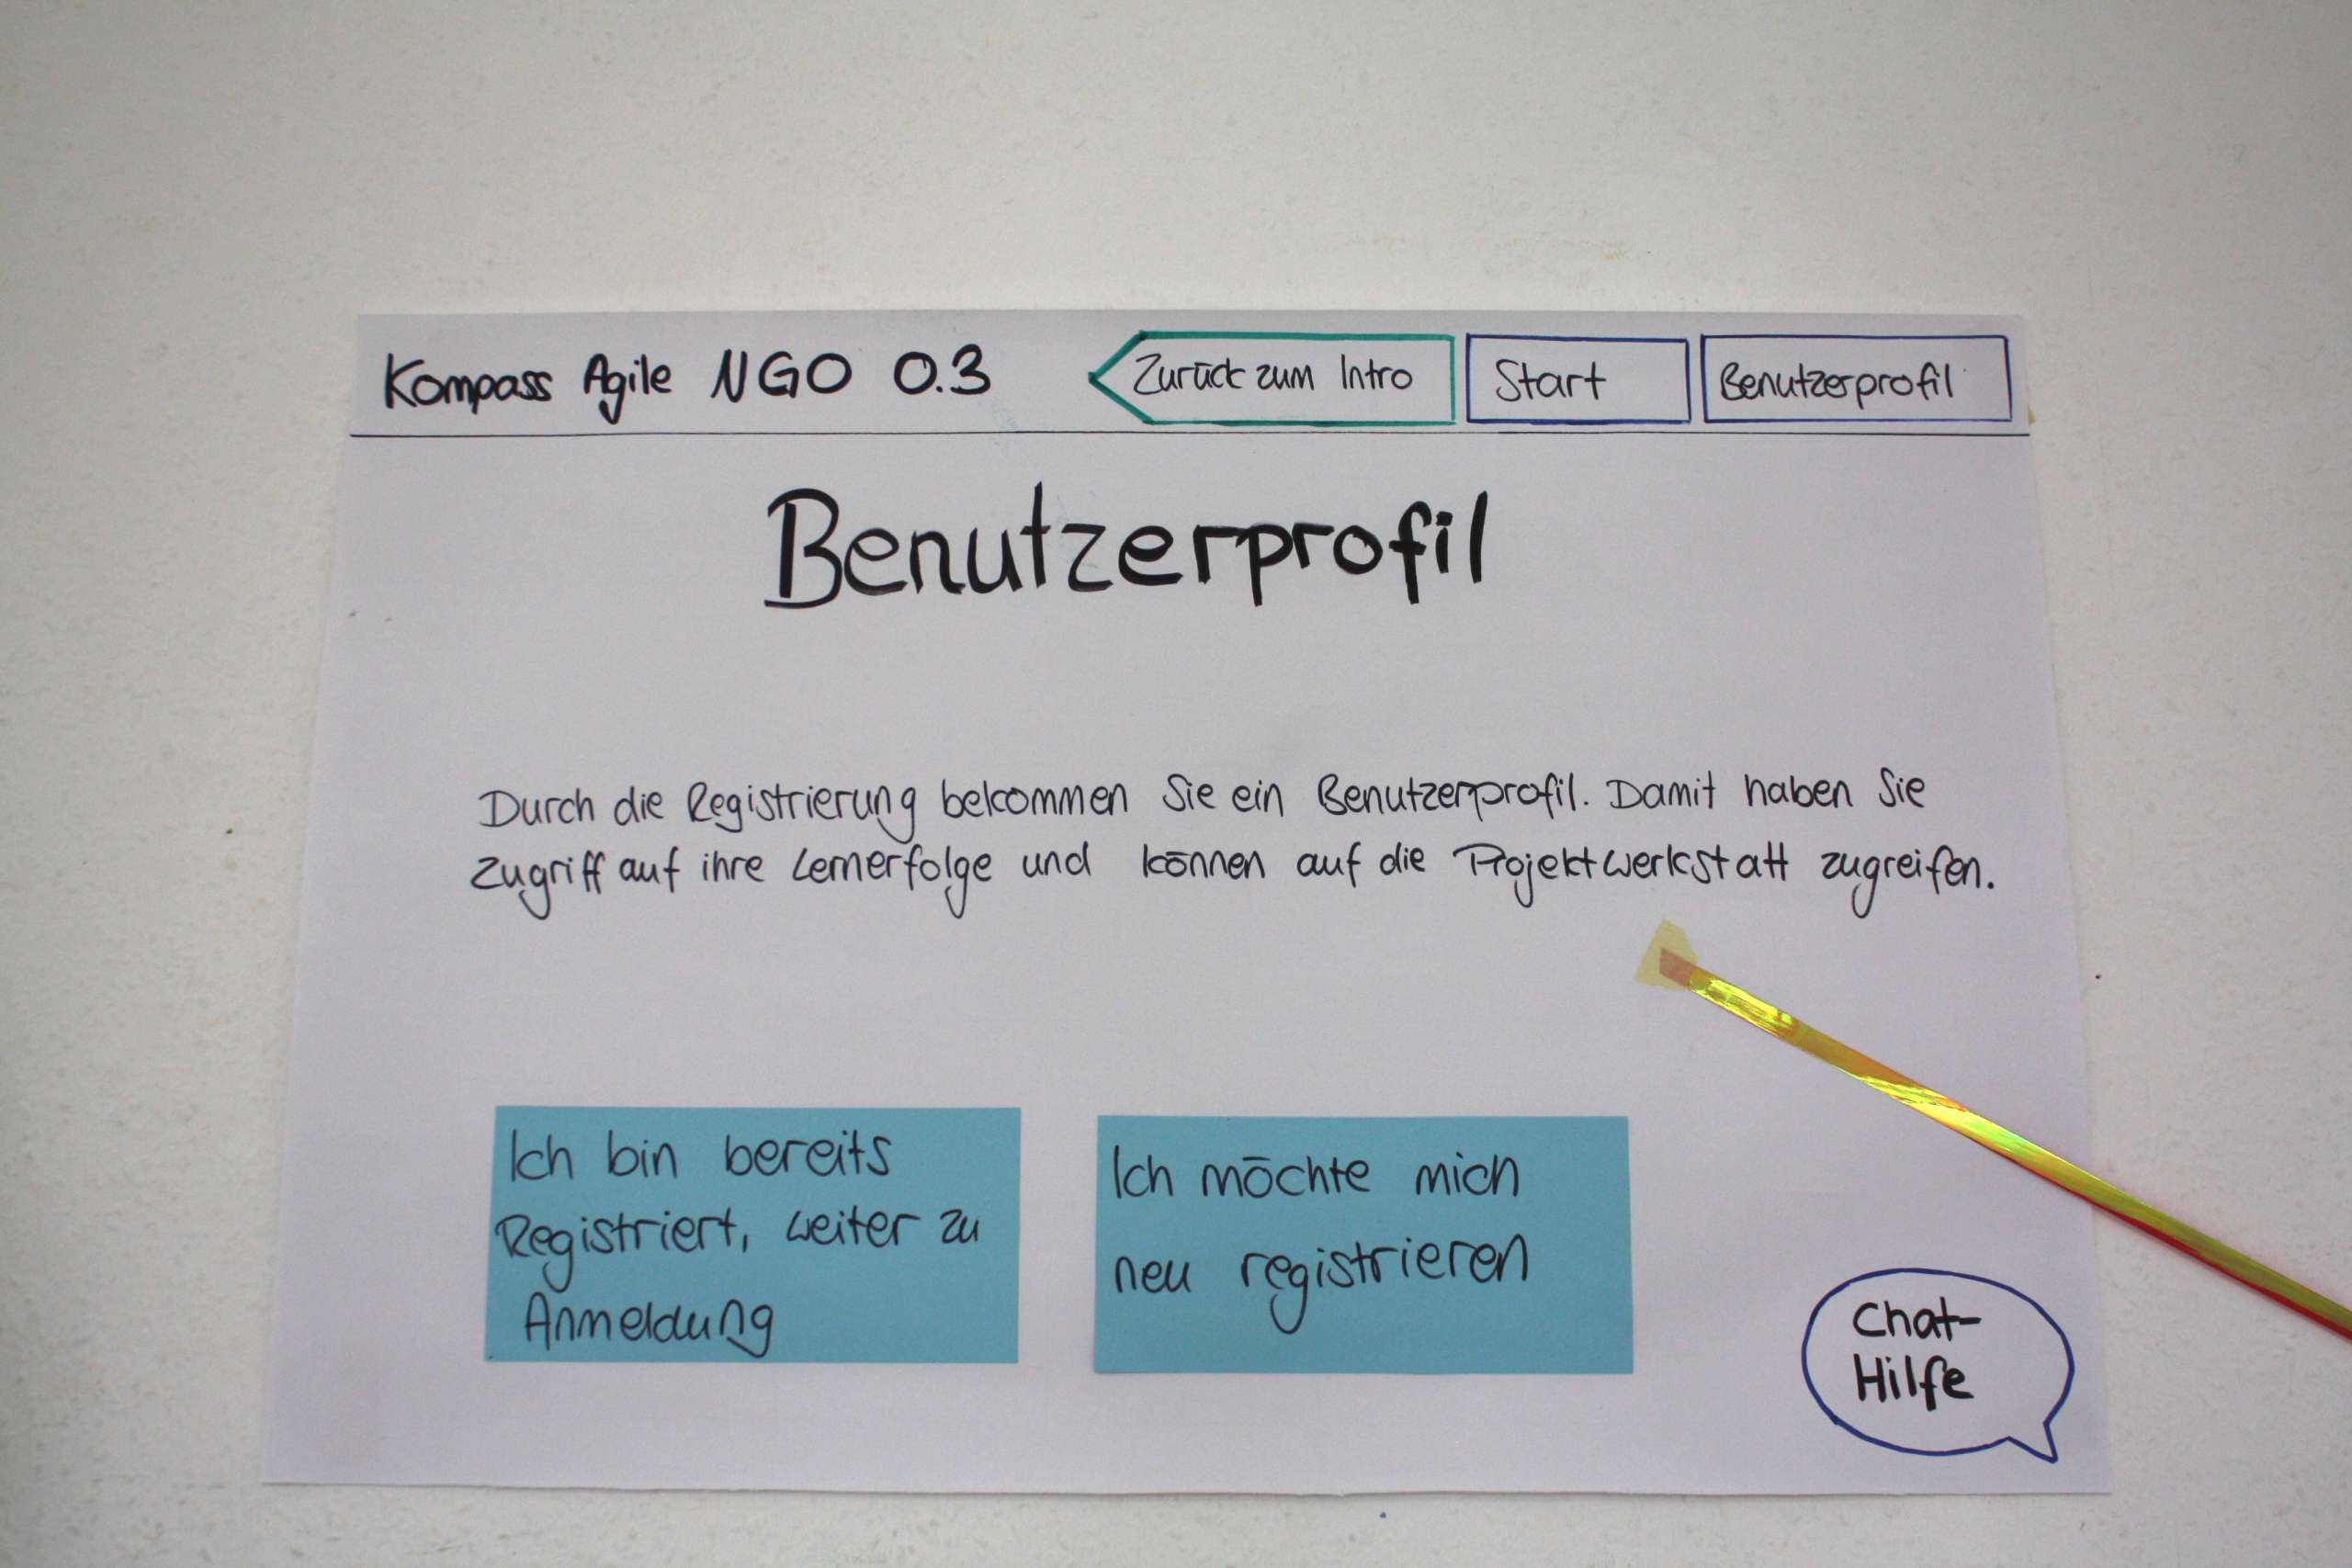 Kompass Agile NGO 0.3
Zurück zum Intro
Start
Benutzerprofil
Benutzerprofil
Durch die Registrierung bekommen Sie ein Benutzerprofil. Damit haben Sie
Zugriff auf ihre Lernerfolge und können auf die Projektwerkstatt zugreifen.
Ich bin bereits
Registriert, weiter zu
Anmeldung
Ich möchte mich
neu registrieren
Chat-
Hilfe